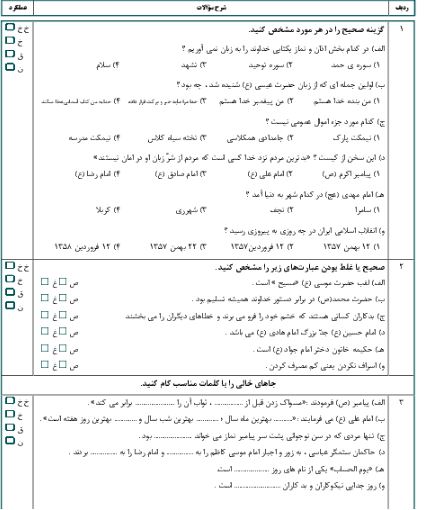 ردیف شرح سؤالات عملکرد
۱ گزینه صحیح را در هر مورد مشخص کنید. خ خ
الف) در کدام بخش اذان و نماز یکتایی خداوند را به زبان نمی آوریم ؟ خ
۱) سوره ی حمد ۲) سوره توحید ۳) تشهد ۴) سلام ق
ب) اولین جمله ای که از زبان حضرت عیسی (ع) شنیده شد ، چه بود؟ ن
۱) من بنده خدا هستم. ۲) من پیغمبر خدا هستم.
ج) کدام مورد جزء اموال عمومی نیست ؟
۱) نیمکت پارک ۲) جامدادی همکلاسی ۳) تخته سیاه کلاس ۴) نیمکت مدرسه
د) این سخن از کیست ؟ «بدترین مردم نزد خدا کسی است که مردم از شرّ زبان او در امان نیستند»
۱) پیامبر اکرم (ص) ۲) امام علی (ع) ۳) امام صادق (ع) ۴) امام رضا (ع)
هـ) امام مهدی (عج) در کدام شهر به دنیا آمد ؟
۱) سامرا ۲) نجف ۳) شهرری ۴) کربلا
و) انقلاب اسلامی ایران در چه روزی به پیروزی رسید ؟
۱) ۱۲ بهمن ۱۳۵۷ ۲) ۱۲ فروردین ۱۳۵۷ ۳) ۲۲ بهمن ۱۳۵۷ ۴) ۱۲ فروردین ۱۳۵۸
۲ صحیح یا غلط بودن عبارت‌های زیر را مشخص کنید. خ خ
الف) لقب حضرت موسی (ع) «مسیح » است . ص غ خ
ب) حضرت محمد(ص) در برابر دستور خداوند همیشه تسلیم بود . ص غ ق
ج) بدکاران کسانی هستند که خشم خود را فرو می برند و خطاهای دیگران را می بخشند ص غ ن
د) امام حسین (ع) جدّ بزرگ امام هادی (ع) می باشد . ص غ
هـ) حکیمه خاتون دختر امام جواد (ع) است . ص غ
و) اسراف نکردن یعنی کم مصرف کردن . ص غ
جاهای خالی را با کلمات مناسب کام کنید.
۳ الف) پیامبر (ص) فرمودند :«مسواک زدن قبل از ............... ، ثواب آن را ............... برابر می کند» . خ خ
ب) امام علی (ع) می فرمایند :«......... بهترین ماه سال ؛ ......... بهترین شب سال و ......... بهترین روز هفته است» . خ
ج) تنها مردی که در سن نوجوانی پشت سر پیامبر نماز می خواند ............... بود . ق
د) حاکمان ستمگر عباسی ، به زور و اجبار امام موسی کاظم را به ............ و امام رضا را به ............ بردند . ن
هـ) «یوم الحساب» یکی از نام های روز ............... است.
و) روز جدایی نیکوکاران و بد کاران .................. است .